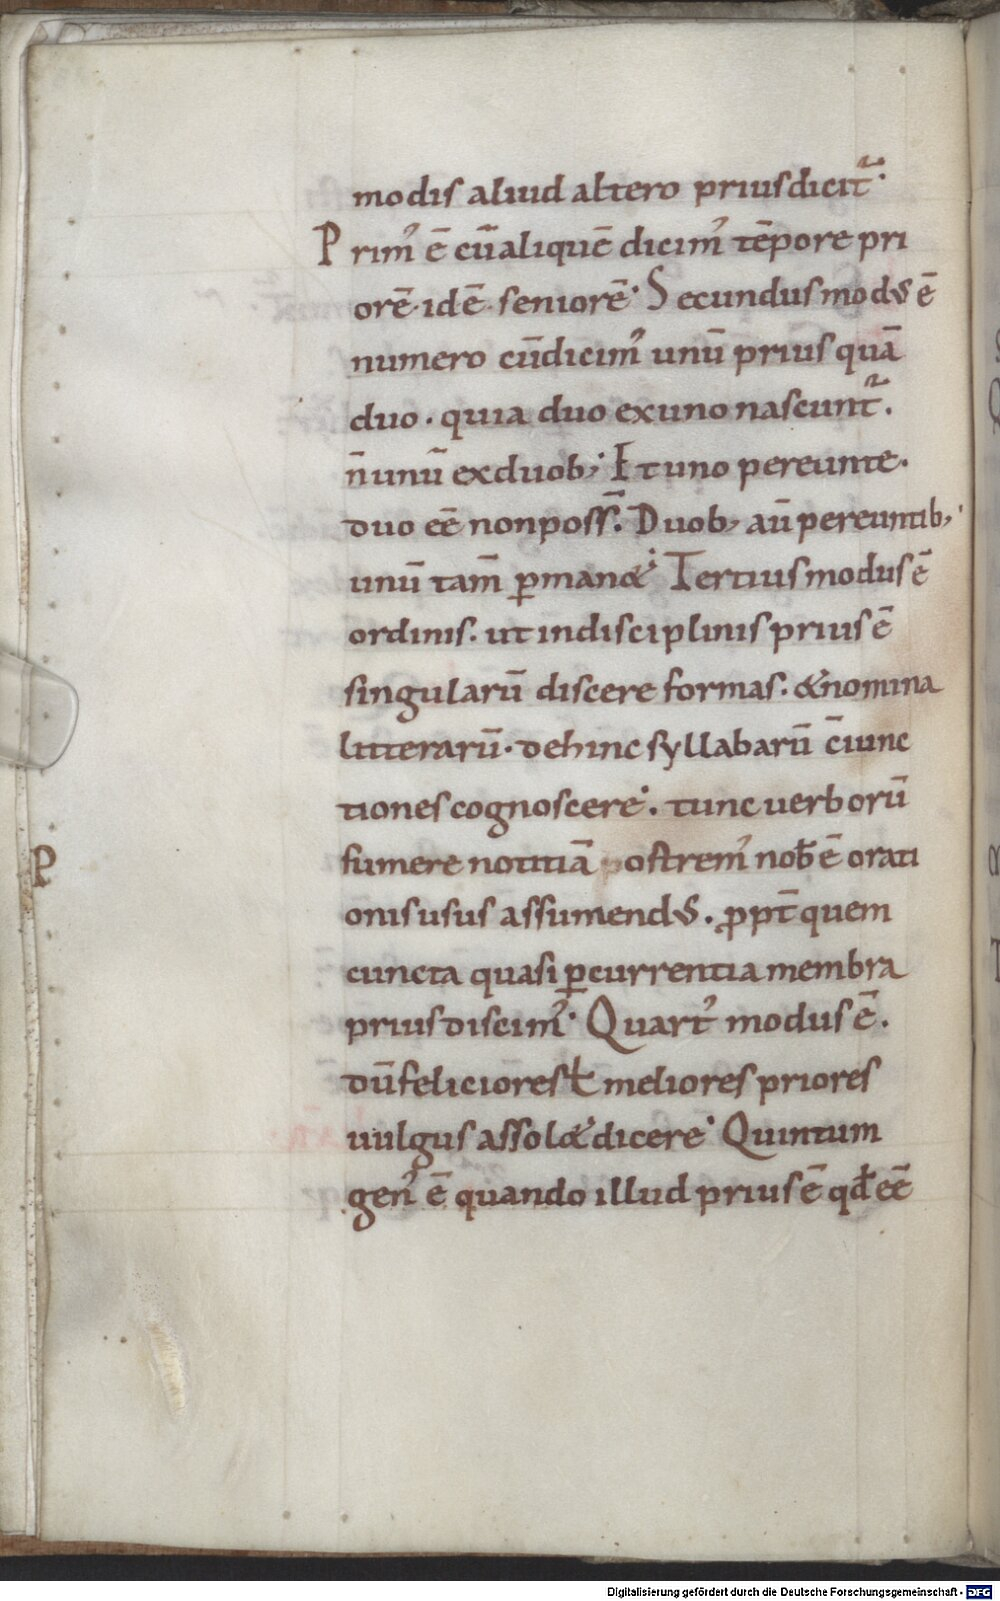 modis aliud altero prius dicit᷑.
Prim᾽ ē cū aliquē dicim᾽ tēpore pri
orē· id ē· seniorē· Secundus modꝰ ē
numero cū dicim᾽ unū prius quā
duo· quia duo ex uno nascunt᷑.
n̄ unū ex duob; Et uno pereunte·
duo eē non poss̄. Duob; aū pereuntib;
unū tam̄ ꝑman& Tertius modus ē
ordinis· ut in disciplinis prius ē
singularū discere formas· & nomina
litterarū· dehinc syllabarū c̄iunc
tiones cognoscere· tunc uerborū
sumere notitiā postrem᾽ nob̄ ē orati
onis usus assumendꝰ. ꝓpt̄ quem
cuncta quasi ꝑcurrentia membra
prius discim᾽· Quart᾽ modus ē.
dū feliciores ł meliores priores
uulgus assol& dicere· Quintum
gen᾽ ē quando illud prius ē qđ eē
P
Digitalisierung gefördert durch die Deutsche Forschungsgemeinschaft - DFG